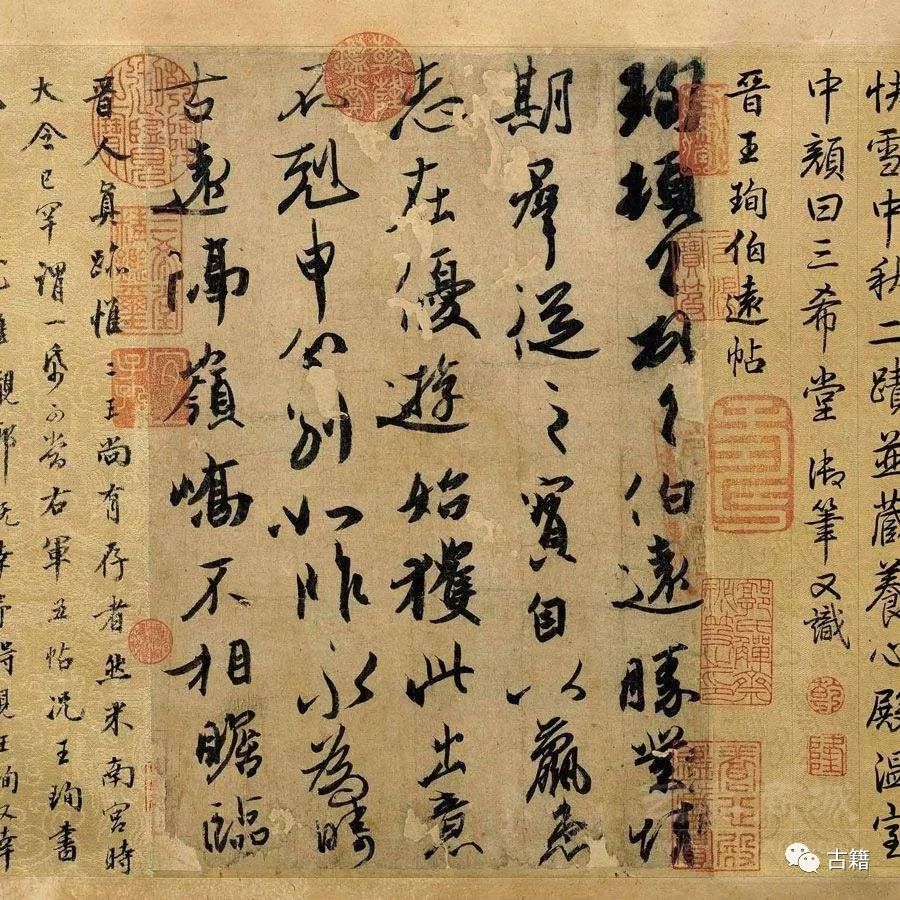 快雪中秋二蹟並藏養心殿溫室
中顏曰三希堂御筆又識
乾
隆
晉王珣伯遠帖
珣頓首頓首伯遠勝業情
期羣從之寶自以羸患
志在優遊始獲此出意
不剋申分別如昨永為疇
古遠隔嶺嶠不相瞻臨
三希堂精鑑璽
宜子孫
晉人真跡惟二王尚有存者然米南宮時
大令已罕謂一紙可當右軍五帖況王珣書
尤難覯耶既幸予得見王珣又幸
古籍